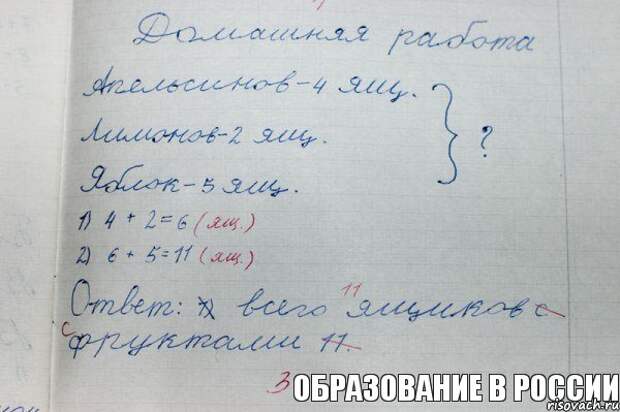 Домашняя работа
Апельсинов-4 ящ.
Лимонов-2 ящ.
?
Яблок-5 ящ.
1) 4 + 2 = 6 (ящ.)
2) 6 + 5 = 11 (ящ.)
11
Ответ: всего ящиков с
с фруктами 11.
3
ОБРАЗОВАНИЕ В РОССИИ
risovach.ru